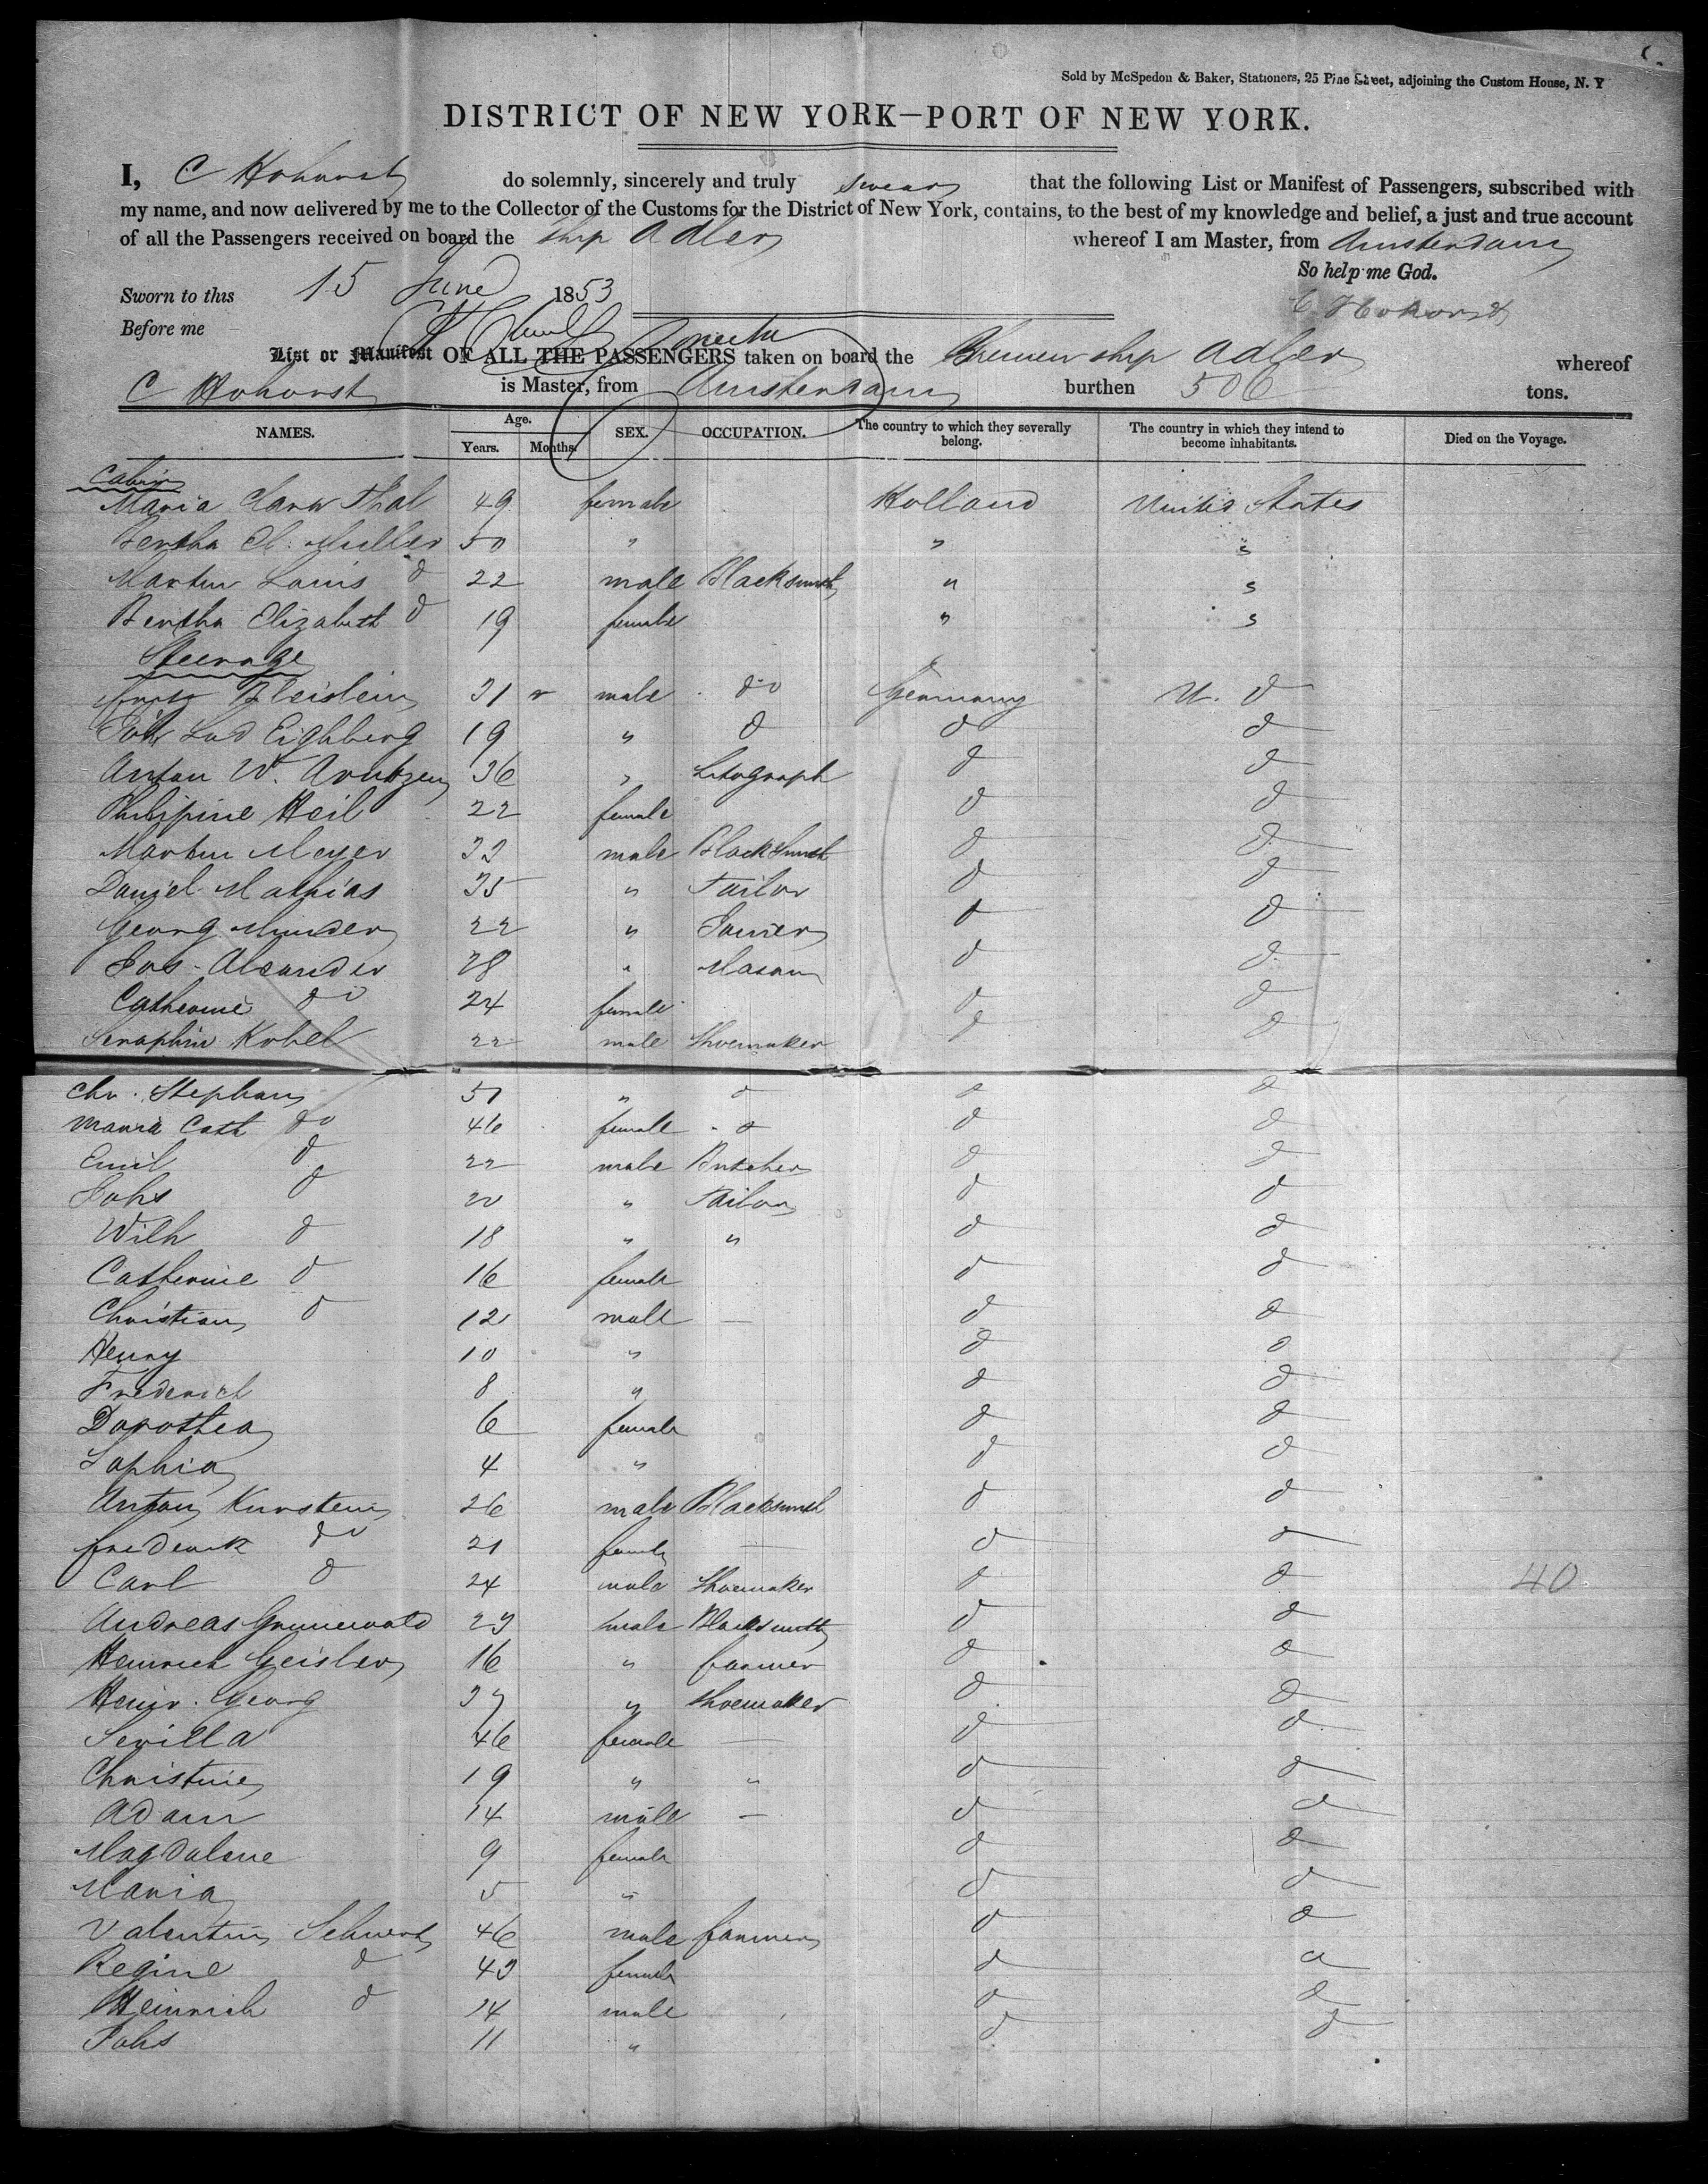 Sold by McSpedon & Baker, Stationers, 25 Pine Street, adjoining the Custom House, N. Y
DISTRICT OF NEW YORK—PORT OF NEW YORK.
I, C Hohorst do solemnly, sincerely and truly swear that the following List or Manifest of Passengers, subscribed with
my name, and now delivered by me to the Collector of the Customs for the District of New York, contains, to the best of my knowledge and belief, a just and true account
of all the Passengers received on board the ship Adler whereof I am Master, from Amsterdam
So help me God.
Sworn to this 15 June 1853
C Hohorst
Before me
List or Manifest OF ALL THE PASSENGERS taken on board the Bremen ship Adler whereof
C Hohorst is Master, from Amsterdam burthen 506 tons.
NAMES. Age. Years. Months. SEX. OCCUPATION. The country to which they severally belong. The country in which they intend to become inhabitants. Died on the Voyage.
Cabin
Maria Clara Thal 49 female Holland United States
Bertha M. Muller 50 " " s
Martin Louis d 22 male Blacksmith " s
Bertha Elizabeth d 19 female " s
Steerage
Bleistein 31 male do Germany U. d
Joh Lud Eighberg 19 " d d d
Anton W. Arntzen 36 " Litograph d d
Philipine Heil 22 female d d
Martin Meyer 33 male Blacksmith d d
Daniel Mathias 35 " Tailor d d
Georg Minder 22 " d d
Jos. Alexander 28 " Mason d d
Catherine do 24 female d d
Seraphin Kobel 22 male Shoemaker d d
Chr. Stephan 51 " d d d
Maria Cath do 46 female d d d
Emil d 22 male Butcher d d
Johs d 20 " Tailor d d
Wilh d 18 " " d d
Catherine d 16 female d d
Christian d 12 male — d d
Henry 10 " d d
Frederich 8 " d d
Dorothea 6 female d d
Sophia 4 " d d
Anton Kurstein 26 male Blacksmith d d
frederick do 21 female — d d
Carl d 24 male Shoemaker d d 40
Andreas Grunewald 23 male Blacksmith d d
Heinrich Geisler 16 " farmer d d
Heinr. Georg 37 " Shoemaker d d
Sevilla 46 female — d d
Christine 19 " " d d
Adam 14 male — d d
Magdalene 9 female d d
Maria 5 " d d
Valentin 46 male farmer d d
Regine d 43 female d d
Heinrich d 14 male d d
Johs 11 " d d